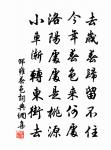 去歲春歸留不住
今年春色來何處
洛陽處處是桃源
小車漸轉東街去
邵雍春色詞典網集